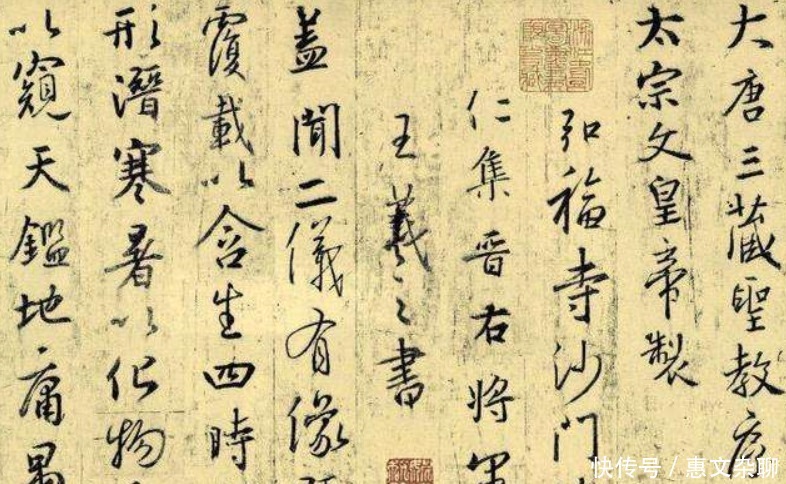 大唐三藏聖教序
太宗文皇帝製
弘福寺沙門
仁集晉右將軍
王羲之書
蓋聞二儀有像
覆載以含生四時
形潛寒暑以化物
以窺天鑑地庸愚
快传号／惠文杂聊